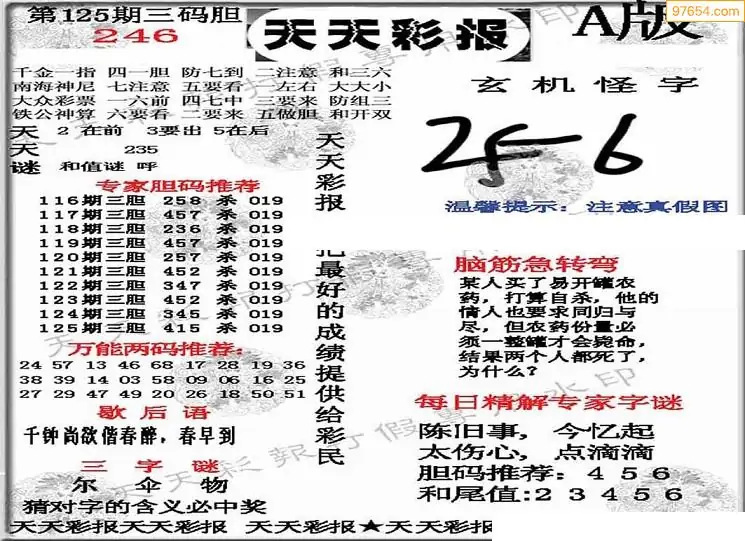 第125期三码胆
246
天天彩报
A版
97654.com
千金一指 四一胆 防七到 二注意 和三六
南海神尼 七注意 五要看 一左右 大大小
大众彩票 一六前 四七中 三要来 防组三
铁公神算 六要看 二要来 五做胆 和开双
天 2在前 3要出 5在后
天 235
谜 和值谜 呼
专家胆码推荐
116期三胆 258 杀 019
117期三胆 457 杀 019
118期三胆 236 杀 019
119期三胆 457 杀 019
120期三胆 257 杀 019
121期三胆 452 杀 019
122期三胆 347 杀 019
123期三胆 452 杀 019
124期三胆 345 杀 019
125期三胆 415 杀 019
万能两码推荐:
24 57 13 46 68 17 28 19 36
38 39 14 03 58 09 06 16 25
27 29 47 49 20 26 18 50 51
歇后语
千钟尚欲偕春醉,春早到
三字谜
尔 伞 物
猜对字的含义必中奖
天天彩报
把最好的成绩提供给彩民
玄机怪字
256
温馨提示:注意真假图
脑筋急转弯
某人买了易开罐农
药,打算自杀,他的
情人也要求同归与
尽,但农药份量必
须一整罐才会毙命,
结果两个人都死了,
为什么?
每日精解专家字谜
陈旧事,今忆起
太伤心,点滴滴
胆码推荐:456
和尾值:23456
天天彩报天天彩报 天天彩报★天天彩报